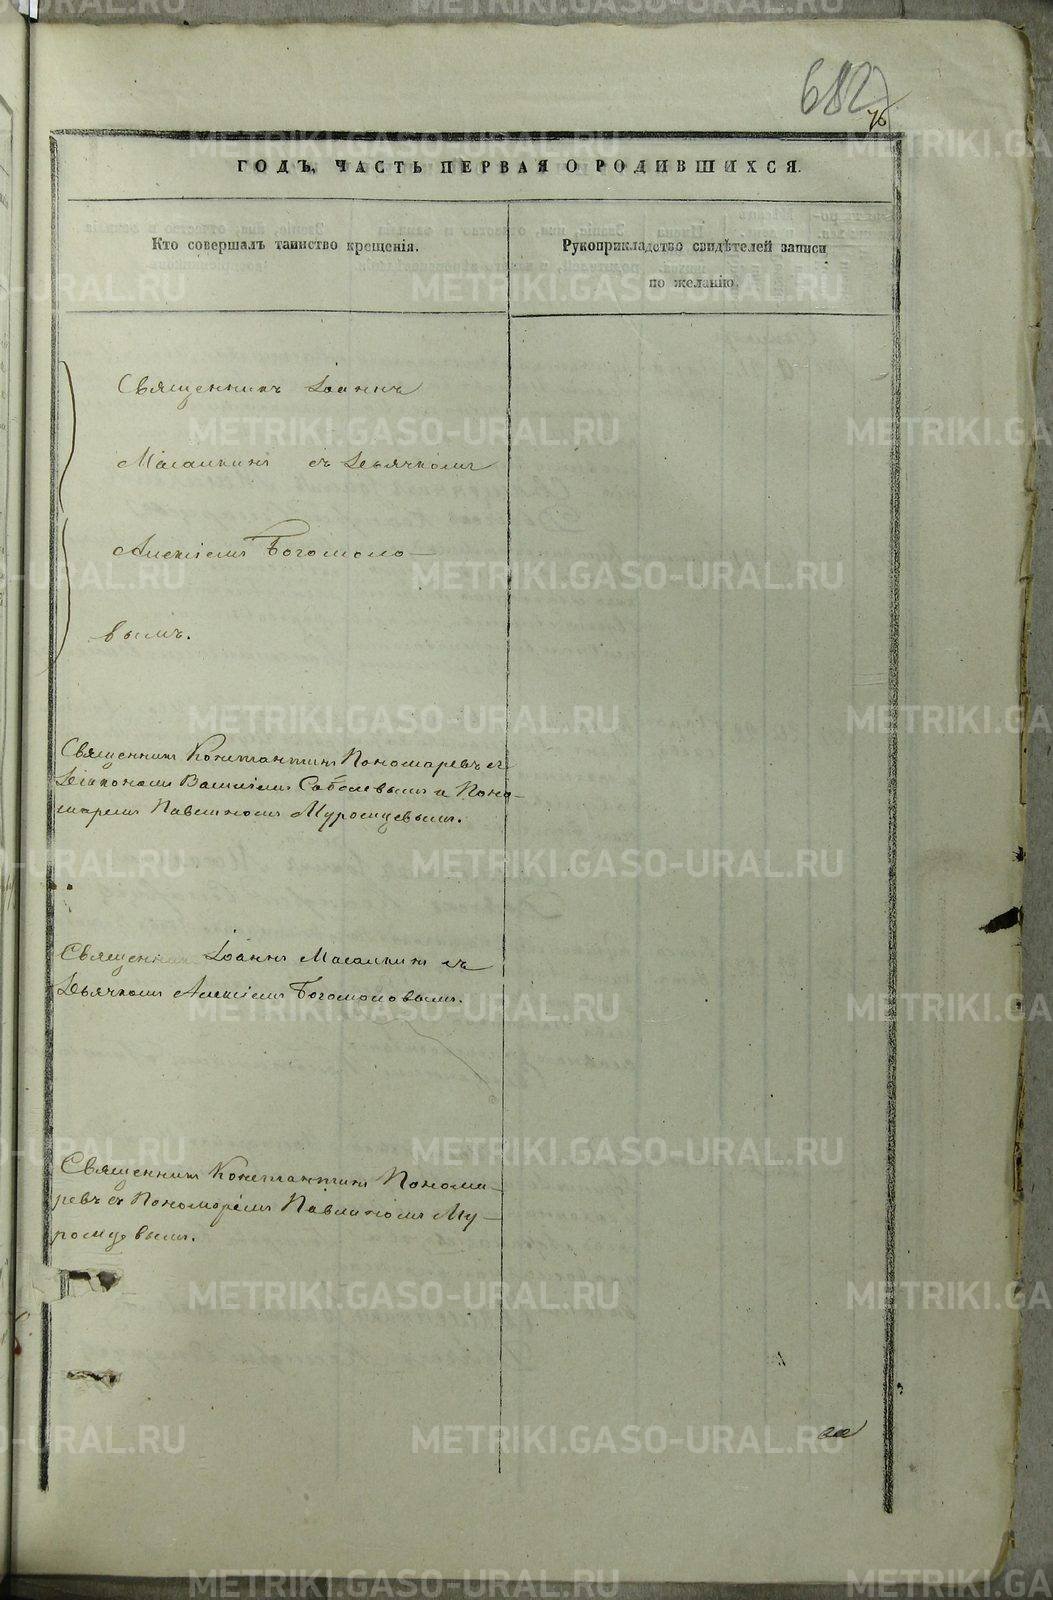 682
76
ГОДЪ, ЧАСТЬ ПЕРВАЯ О РОДИВШИХСЯ.
Кто совершалъ таинство крещенія.
Рукоприкладство свидѣтелей записи
по желанію.
Священникъ Іоаннъ
Масалкинъ съ Дьячкомъ
Алексіемъ Богомоло-
вымъ.
Священникъ Константинъ Пономаревъ съ
Діакономъ Василіемъ Соболевымъ и Поно-
маремъ Павлиномъ Муромцевымъ.
Священникъ Іоаннъ Масалкинъ съ
Дьячкомъ Алексіемъ Богомоловымъ.
Священникъ Константинъ Понома-
ревъ съ Пономаремъ Павлиномъ Му-
ромцевымъ.
METRIKI.GASO-URAL.RU